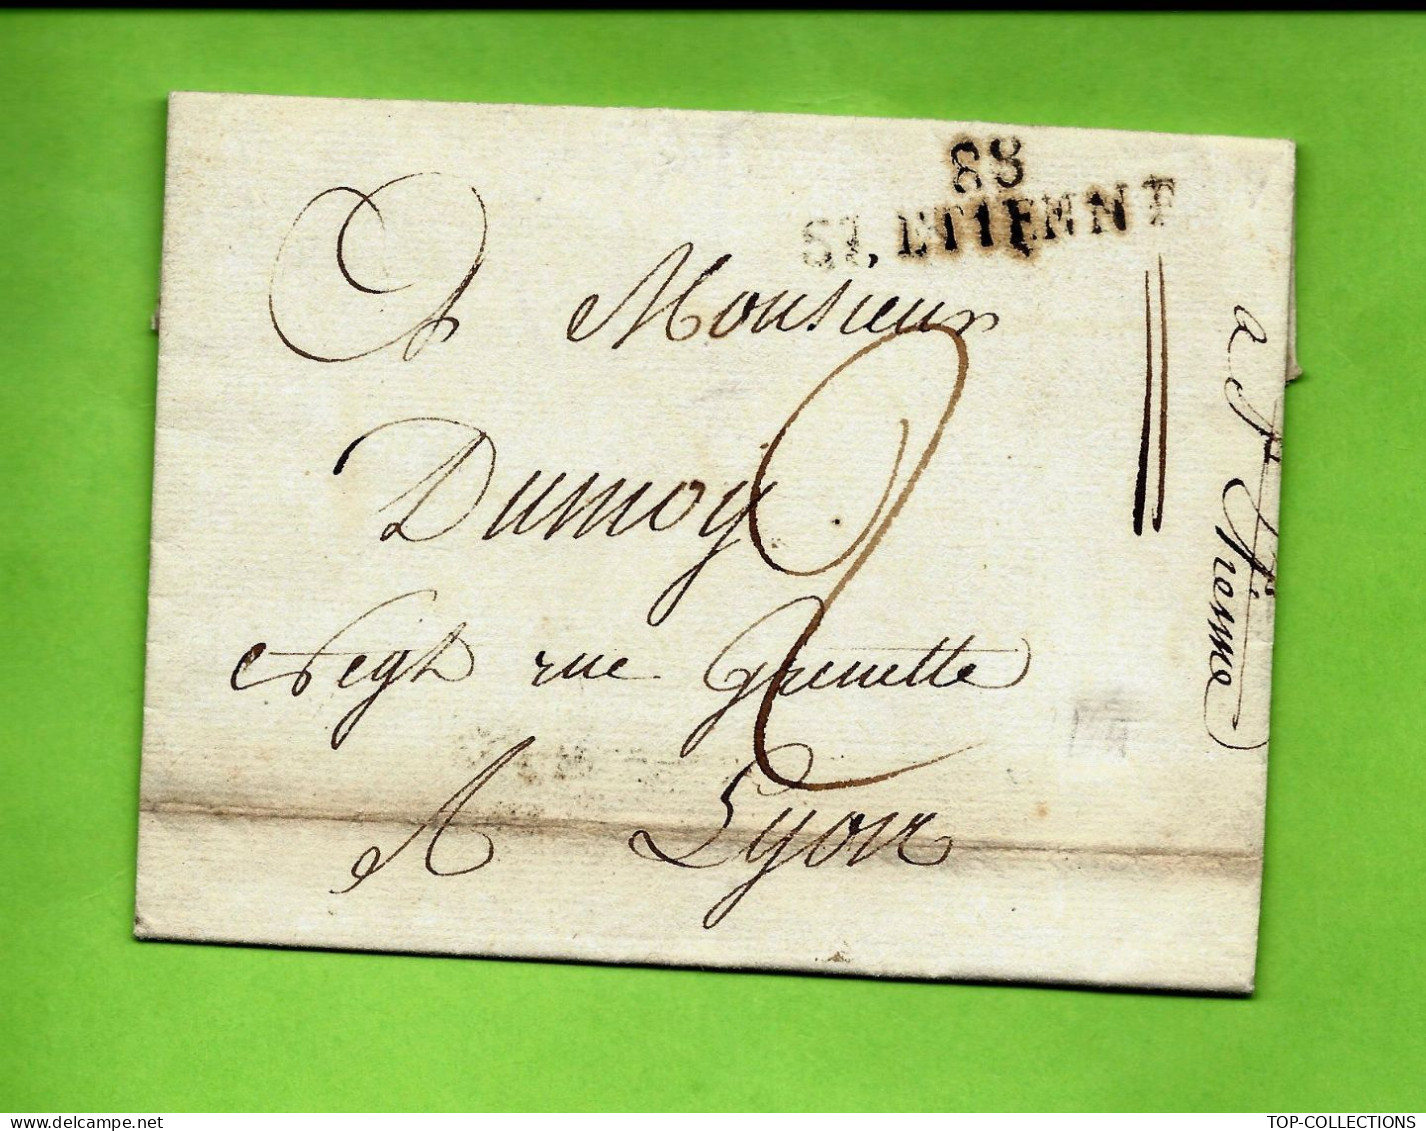 88
ST. ETIENNE
A Monsieur
Dumoy
Negt rue Grenette
A Lyon
2
a St Etienne
www.delcampe.net
TOP-COLLECTIONS